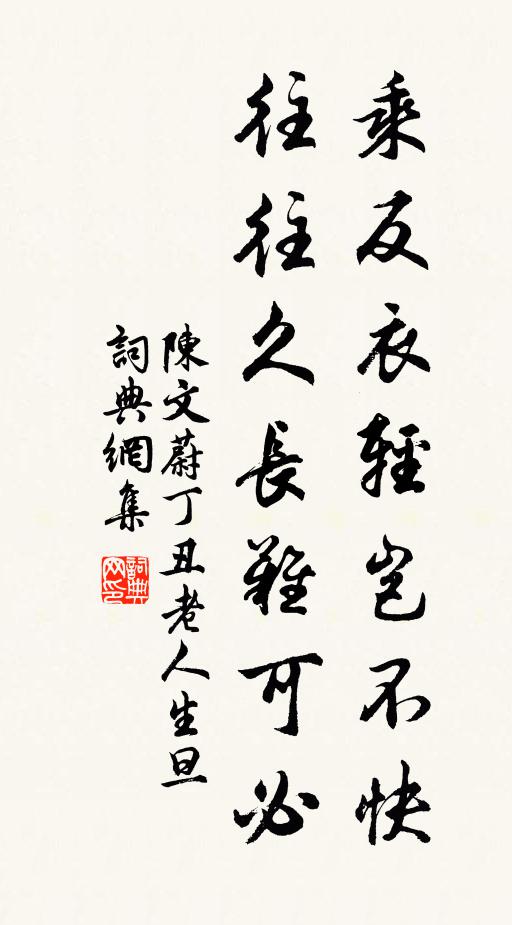 乘反衣輕豈不快
往往久長難可必
陳文蔚丁丑老人生旦
詞典網集
詞典网印